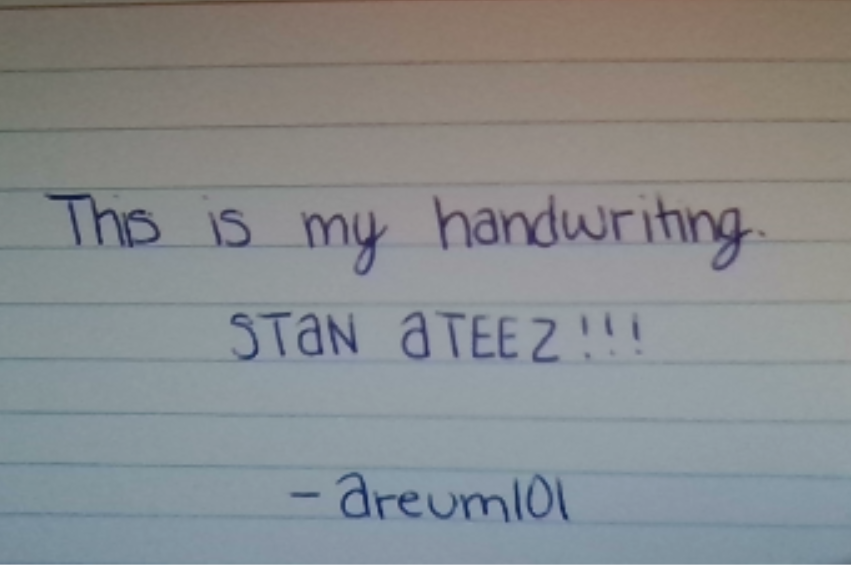 This is my handwriting.
STaN aTEEZ!!!
- areum101